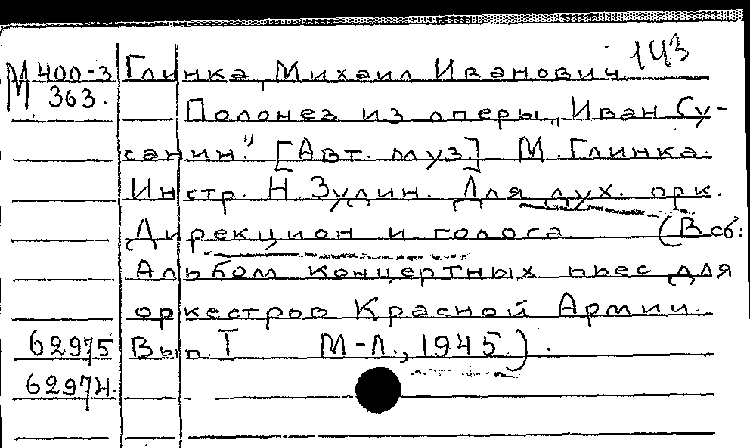 143
М 400-3 Глинка, Михаил Иванович
363. Полонез из оперы „Иван Су-
санин." [Авт. муз.] М. Глинка.
Инстр. Н. Зудин. Для дух. орк.
Дирекцион и голоса (В сб:
Альбом концертных пьес для
оркестров Красной Армии.
62975 Вып. I М-Л., 1945.).
62974.